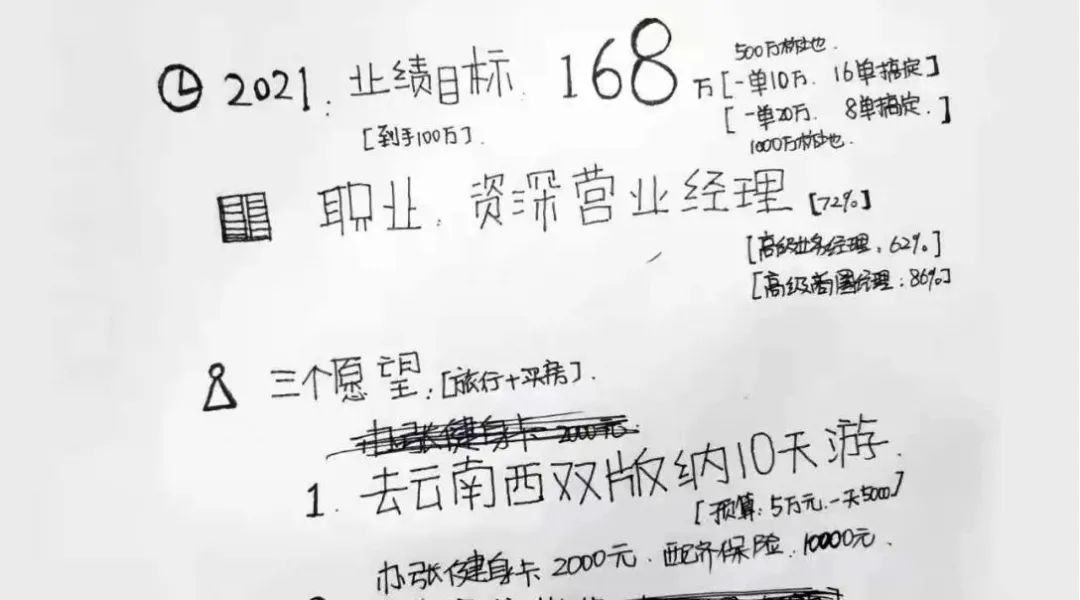 500万桩地.
2021. 业绩目标. 168万 [一单10万. 16单搞定]
[到手100万]. [一单20万. 8单搞定.]
1000万桩地.
职业. 资深营业经理 [72%]
[高级业务经理. 62%]
[高级商圈经理: 86%]
三个愿望: [旅行+买房].
办张健身卡 2000元.
1. 去云南西双版纳10天游.
[预算: 5万元. 一天5000]
办张健身卡 2000元. 配齐保险. 10000元.